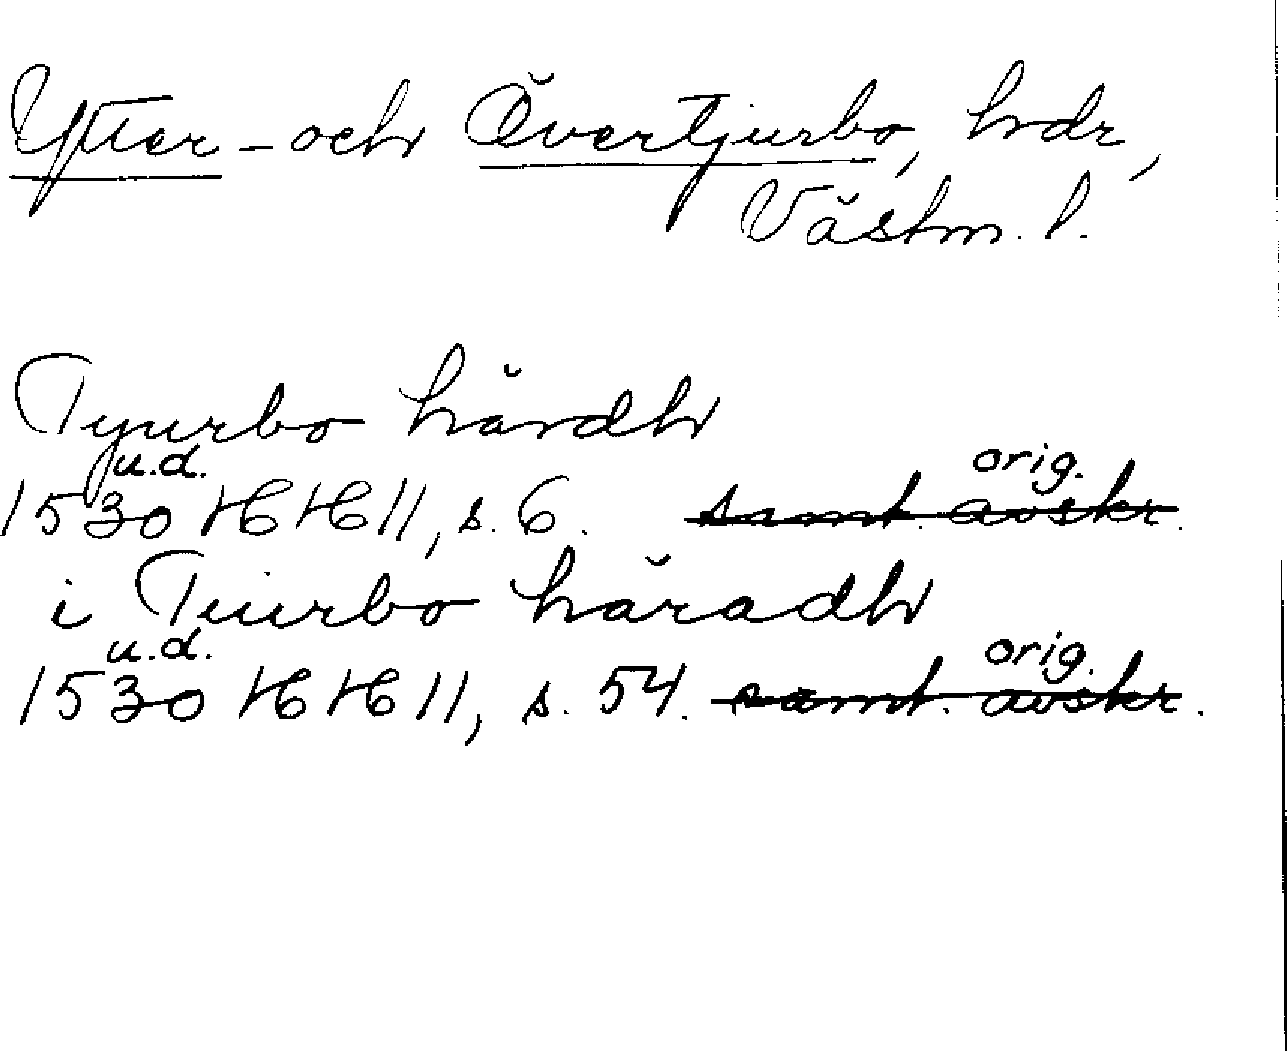 Ytter- och Övertjurbo, hdr,
Västm. l.
Tyurbo härdh
u.d. orig.
1530 HH 11, s. 6. samt. avskr.
i Tiurbo häradh
u.d. orig.
1530 HH 11, s. 54. samt. avskr.